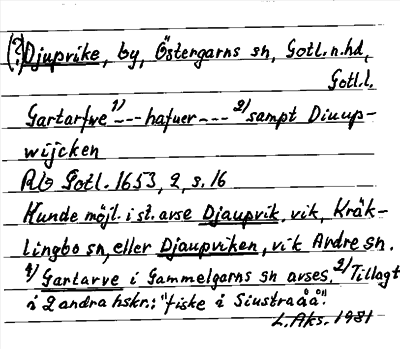 (?) Djuprike, by, Östergarns sn, Gotl. n. hd,
Gotl. l.
Gartarfve 1) --- hafuer --- 2) sampt Diuup-
wijcken
Rb Gotl. 1653, 2, s. 16
Kunde möjl. i st. avse Djaupvik, vik, Kräk-
lingbo sn, eller Djaupviken, vik Ardre sn.
1) Gartarve i Gammelgarns sn avses. 2) Tillagt
i 2 andra hskr.: "fiske i Siustraåå".
L. Aks. 1981